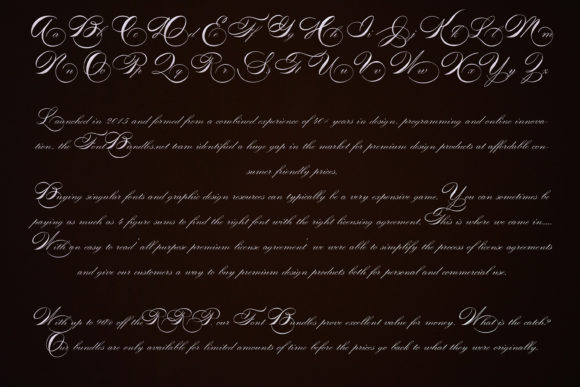 Aa Bb Cc Dd Ee Ff Gg Hh Ii Jj Kk Ll Mm
Nn Oo Pp Qq Rr Ss Tt Uu Vv Ww Xx Yy Zz
Launched in 2015 and formed from a combined experience of 40+ years in design, programming and online innova-
tion. the FontBundles.net team identified a huge gap in the market for premium design products at affordable con-
sumer friendly prices.
Buying singular fonts and graphic design resources can typically be a very expensive game. You can sometimes be
paying as much as 4 figure sums to find the right font with the right licensing agreement. This is where we came in....
With an easy to read 'all purpose premium license agreement' we were able to simplify the process of license agreements
and give our customers a way to buy premium design products both for personal and commercial use.
With up to 96% off the RRP, our Font Bundles prove excellent value for money. What is the catch?
Our bundles are only available for limited amounts of time before the prices go back to what they were originally.